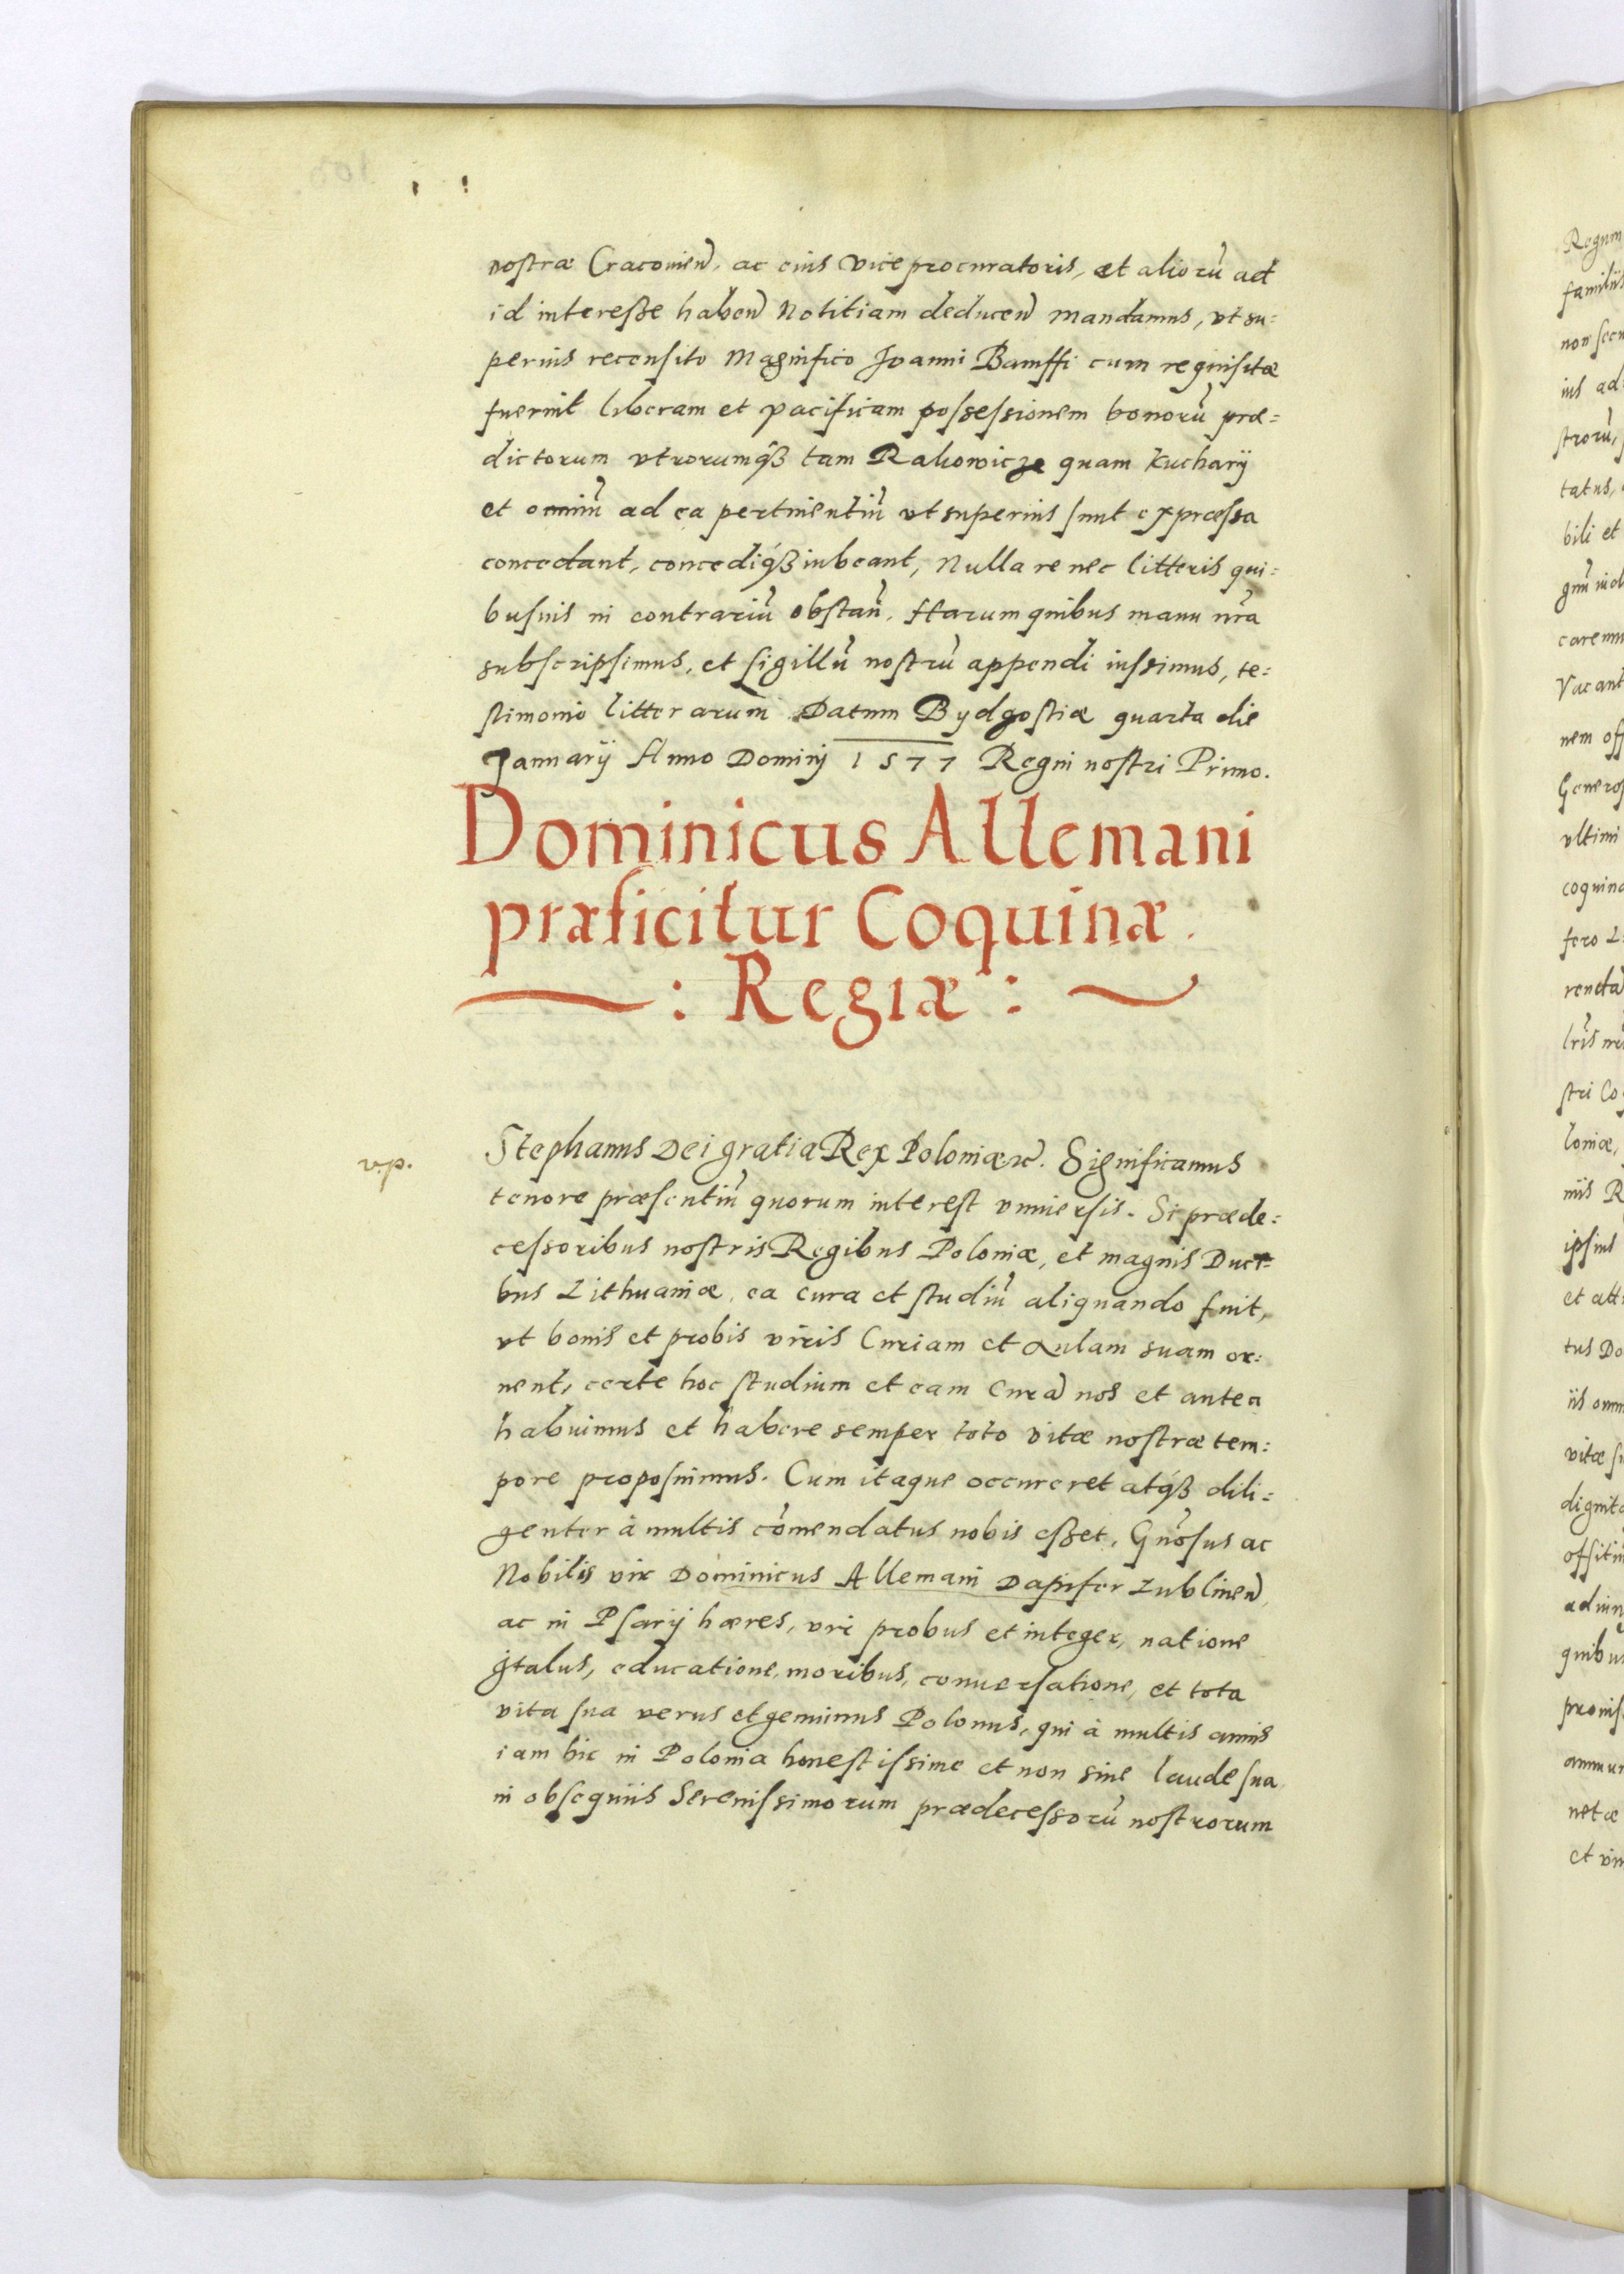 nostræ Cracovień, ac eius Viceprocuratoris, et aliorū ad
id interesse habeń Notitiam deduceń mandamus, vt su=
perius recensito Magnifico Joanni Bamffi cum requisitæ
fuerint liberam et pacificam possessionem bonorū præ=
dictorum vtrorumq́ʒ tam Rakowicze quam Kucharÿ
et omniū ad ea pertinentiū vt superius sunt expressa
concedant, concediq́ʒ iubeant, Nulla re nec litteris qui=
busuis in contrariū obstań. Harum quibus manu nr̄a
subscripsimus, et sigillū nostrū appendi iussimus, te=
stimonio litterarum. Datum Bydgostiæ quarta die
Januarÿ Anno Dominj 1577 Regni nostri Primo.
Dominicus Allemani
præficitur Coquinæ
: Regiæ :
Stephanus Dei gratia Rex Poloniæ ꝛc. Significamus
tenore præsentiū quorum interest vniuersis. Si præde=
cessoribus nostris Regibus Poloniæ, et magnis Duci=
bus Lithuaniæ, ea cura et studiū aliquando fuit,
vt bonis et probis viris Curiam et Aulam suam or=
nent, certe hoc studium et eam Curā nos et antea
habuimus et habere semper toto vitæ nostræ tem=
pore proposuimus. Cum itaque occurreret atq́ʒ dili=
genter à multis cōmendatus nobis esset, Gnōsus ac
Nobilis vir Dominicus Allemani Dapifer Lublineń,
ac in Psarÿ hæres, vir probus et integer, natione
Jtalus, educatione, moribus, conuersatione, et tota
vita sua verus et genuinus Polonus, qui à multis annis
iam hic in Polonia honestissime et non sine laude sua
in obsequiis Serenissimorum prædecessorū nostrorum
Regum
familiis
non secu
ius ad
strorū,
tatus,
bili et
caremu
Vacant
nem off
Generos
vltimi
coquina
fero L
stri Co
loniæ,
niis R
ipsius
et att
tus Do
iis omn
vitæ su
dignita
quibus
prouis
annuu
netæ
et vin